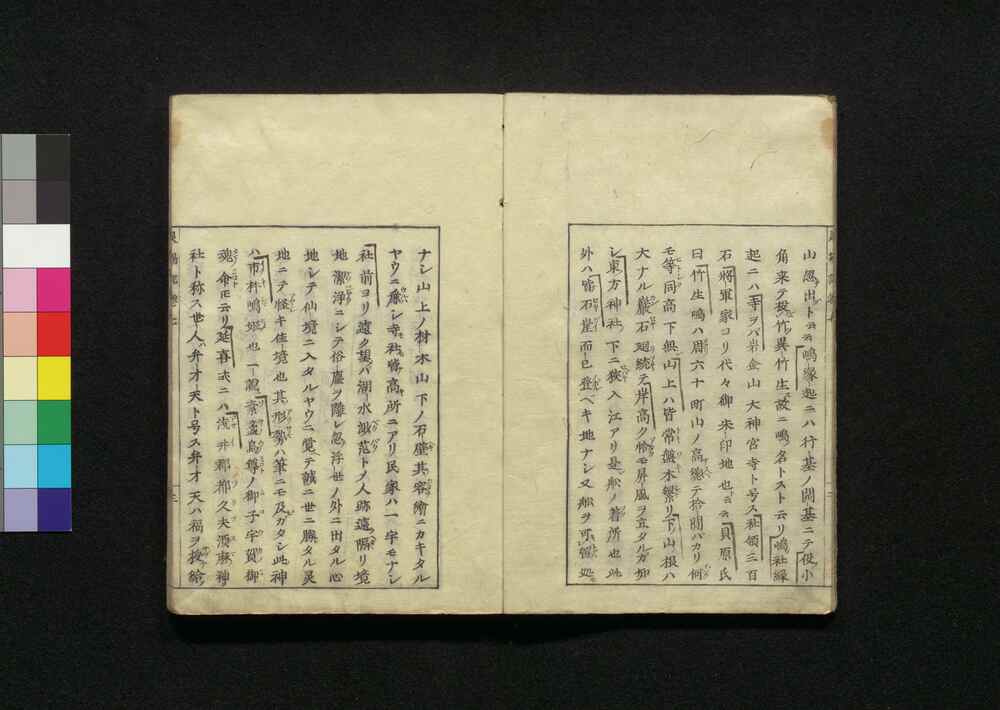 山忽出ト云云嶋縁起ニハ行基ノ開基ニテ役小
角来テ投竹異竹生故ニ嶋名トスト云リ嶋社縁
起ニハ寺ヲバ岩金山大神宮寺ト号ス社領三百
石将軍家ヨリ代々御朱印地也云云貝原氏
曰竹生嶋ハ周六十町山ノ高徳テ拾間バカリ何
モ等同高下無山上ハ皆常盤木繁リ下山根ハ
大ナル巌石廻続テ岸高ク恰モ屏風ヲ立タルガ如
シ東方神社下ニ狭入江アリ是舩ノ着所也此
外ハ皆石崖而已登ベキ地ナシ又舩ヲ可繋処
ナシ山上ノ材木山下ノ石壁其容繪ニカキタル
ヤウニ寺社皆高所ニアリ民家ハ一宇モナシ
社前ヨリ遠ク望バ湖水渺范トノ人跡遠隔リ境
地潔浄ニシテ俗塵ヲ離レ忽浮世ノ外ニ出タル心
地シテ仙境ニ入タルヤウニ覚テ誠ニ世ニ勝タル灵
地ニテ怪キ佳境也其形勢ハ筆ニモ及ガタシ此神
ハ市杵嶋姫也一説素盞烏尊ノ御子宇賀御
魂命トモ云リ延喜式ニハ浅井郡都久夫須麻神
社ト称ス世人弁才天ト号ス弁才天ハ福ヲ授給